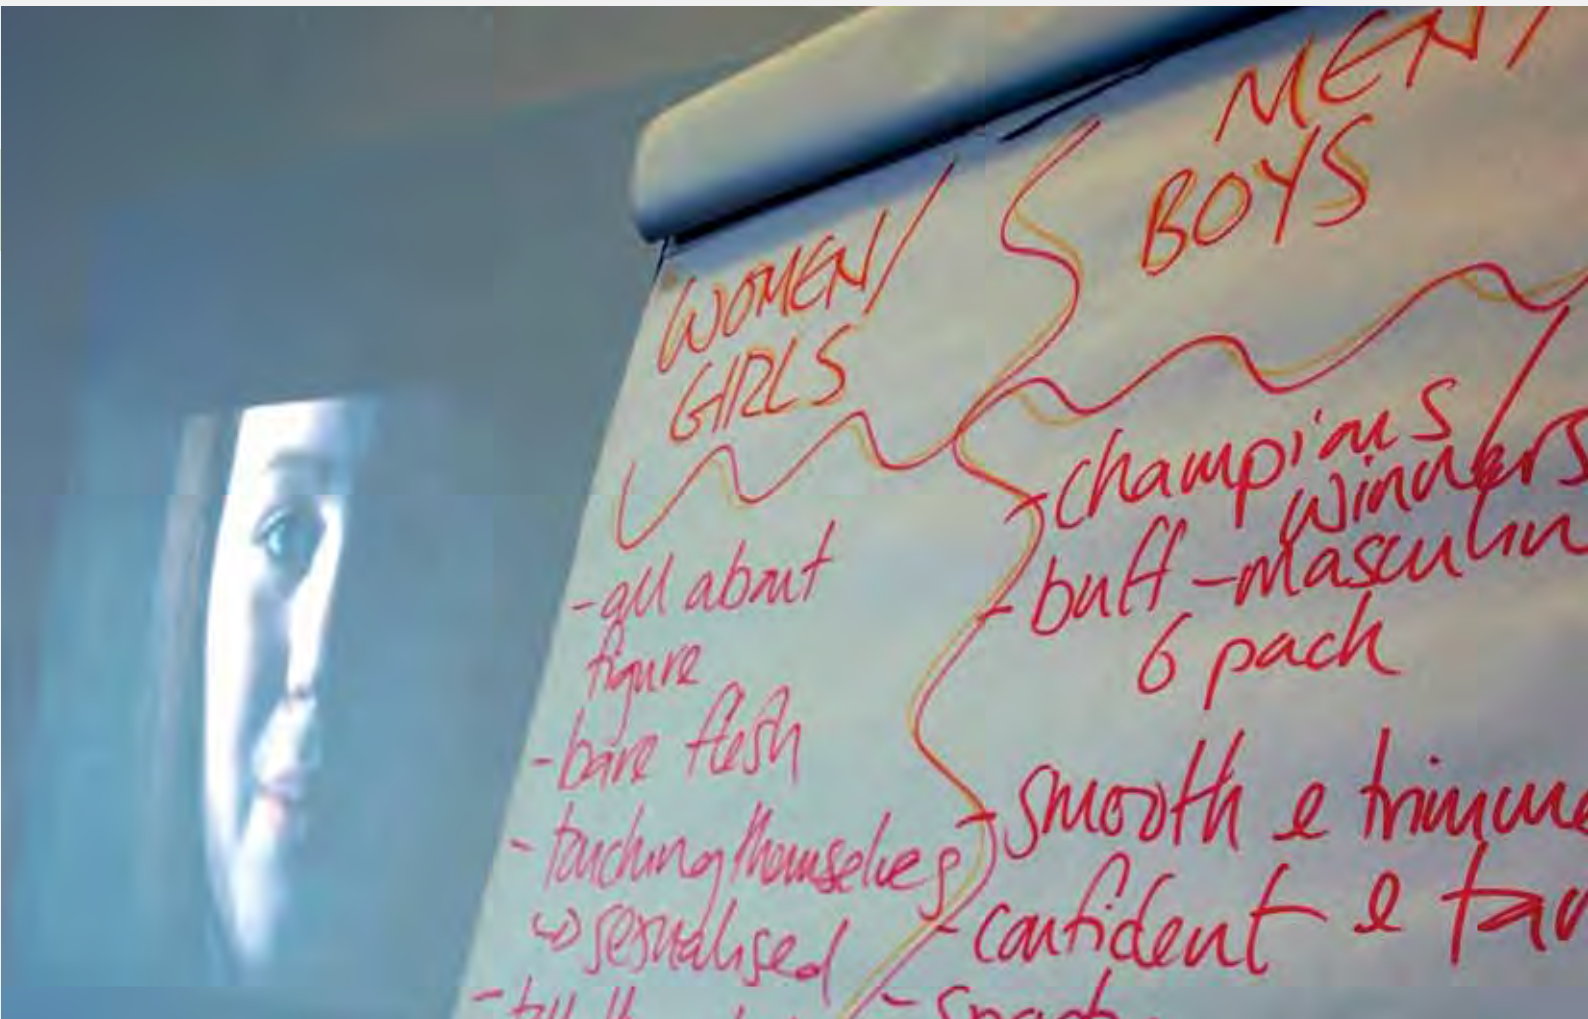 WOMEN/
GIRLS
-all about
figure
-bare flesh
-touching themselves
sexualised
-
MEN/
BOYS
-champions/
winners
-buff-masculin
6 pack
-smooth & trimme
-confident & tan
-